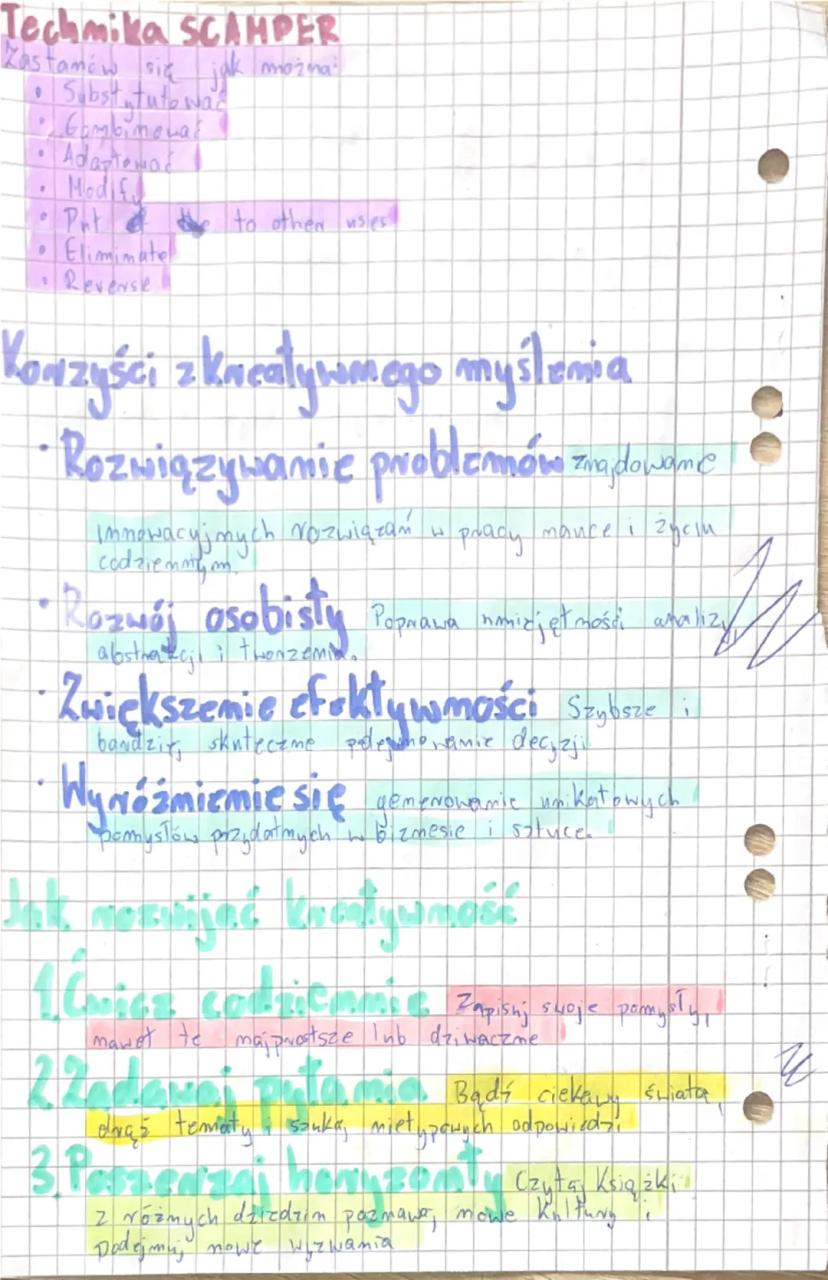 Technika SCAMPER
Zastanów się jak można:
• Substytutować
• Combinować
• Adaptować
• Modify
• Put to other uses
• Eliminate
• Reverse
Korzyści z kreatywnego myślenia
• Rozwiązywanie problemów znajdowanie
innowacyjnych rozwiązań w pracy nauce i życiu
codziennym.
• Rozwój osobisty Poprawa umiejętności analizy
abstrakcji i tworzenia.
• Zwiększenie efektywności Szybsze i
bardziej skuteczne podejmowanie decyzji
• Wyróżnienie się generowanie unikatowych
pomysłów przydatnych w biznesie i sztuce.
Jak rozwijać kreatywność
1. Ćwicz codziennie Zapisuj swoje pomysły,
nawet te najprostsze lub dziwaczne
2. Zadawaj pytania Bądź ciekawy świata,
drąż tematy i szukaj nietypowych odpowiedzi
3. Poszerzaj horyzonty Czytaj Książki
z różnych dziedzin poznawaj nowe kultury i
Podejmuj nowe wyzwania